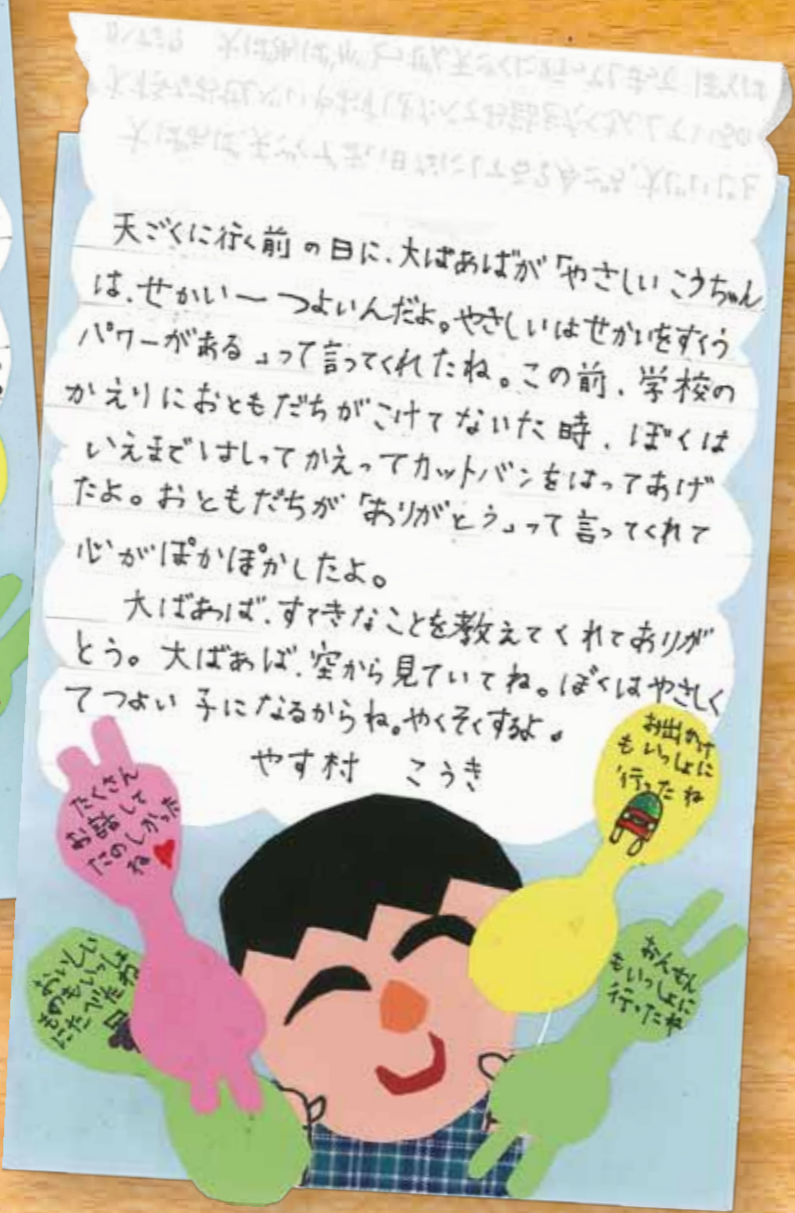 天ごくに行く前の日に、大ばあばが「やさしいこうちゃん
は、せかい一つよいんだよ。やさしいはせかいをすくう
パワーがある」って言ってくれたね。この前、学校の
かえりにおともだちがこけてないた時、ぼくは
いえまではしってかえってカットバンをはってあげ
たよ。おともだちが「ありがとう」って言ってくれて
心がぽかぽかしたよ。
大ばあば、すてきなことを教えてくれてありが
とう。大ばあば、空から見ていてね。ぼくはやさしく
てつよい子になるからね。やくそくするよ。
やす村 こうき
たくさん
お話して
たのしかった
ね
お出かけ
もいっしょに
行ったね
おいしい
ものもいっしょ
にたべたね
おんせん
もいっしょに
行ったね